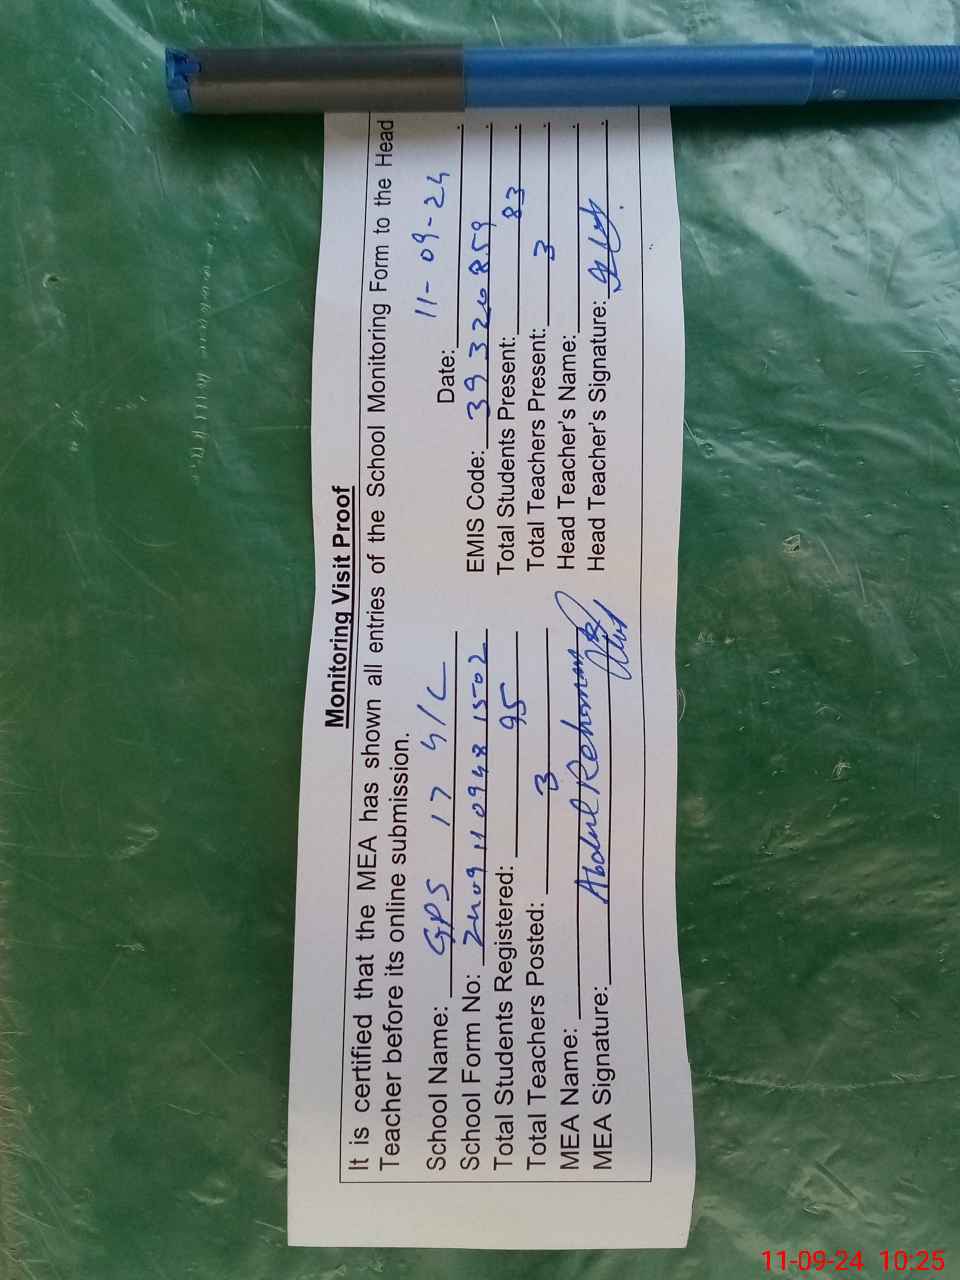 Monitoring Visit Proof
It is certified that the MEA has shown all entries of the School Monitoring Form to the Head
Teacher before its online submission.
Date: 11-09-24
School Name: GPS 17 4/L
EMIS Code: 39326859
School Form No: 24091109481502
Total Students Present: 83
Total Students Registered: 95
Total Teachers Present: 3
Total Teachers Posted: 3
Head Teacher's Name:
MEA Name: Abdul Rehman
Head Teacher's Signature:
MEA Signature:
11-09-24 10:25